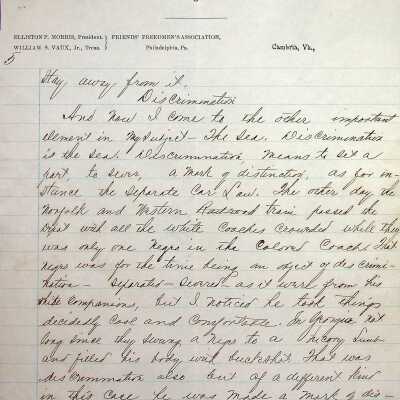 ELLISTON P. MORRIS, President. } FRIENDS' FREEDMEN'S ASSOCIATION,
WILLIAM S. VAUX, Jr., Treas. Philadelphia, Pa. Cambria, Va.,
5
Stay away from it.
Discrimination
And now I come to the other important
element in my subject - The Sea. Discrimination
is the Sea. Discrimination, means to set a
part, to sever, a mark of distinction, as for in-
stance the Separate Car Law. The other day the
Norfolk and Western Railroad train passed the
Depot with all the white Coaches crowded while there
was only one Negro in the Colored Coach. That
Negro was for the time being an object of discrimi-
nation - Seperated - Severed - as it were from his
white Companions, but I noticed he took things
decidedly Cool and Comfortable. In Georgia not
long since they swung a Negro to a hickory limb
and filled his body with buckshot. That was
discrimination also but of a different kind
in this case he was made a mark of dis-